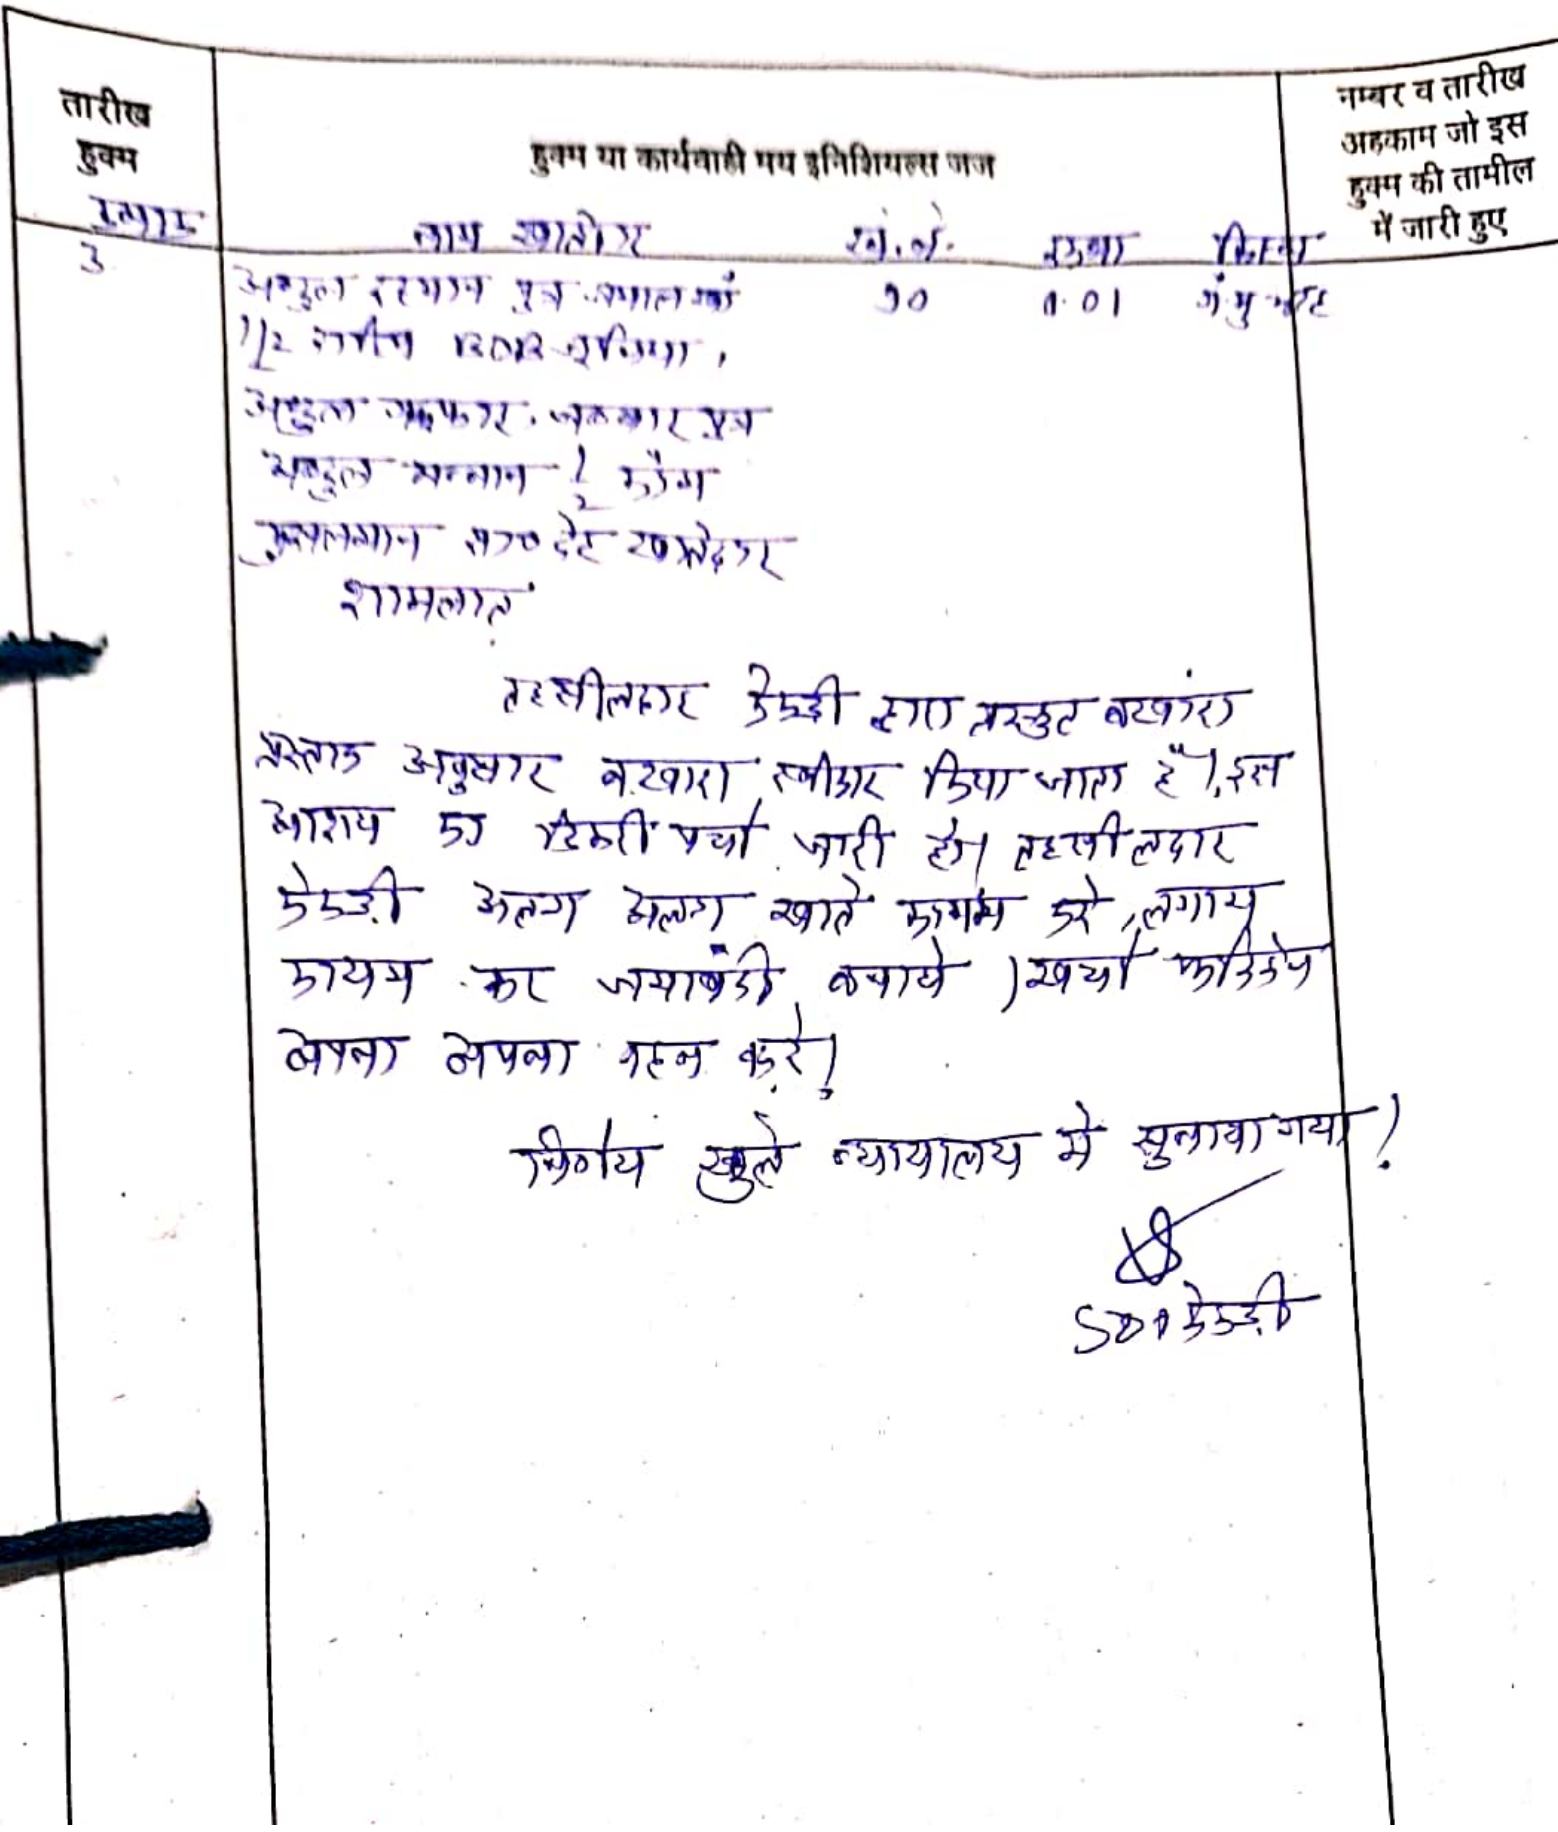 तारीख
हुक्म
हुक्म या कार्यवाही मय इनिशियल्स जज
नम्बर व तारीख
अहकाम जो इस
हुक्म की तामील
में जारी हुए
नाम खातेदार ख.नं. रकबा किस्म
3
अब्दुल रहमान पुत्र 90 0.01
1/2
अब्दुल गफ्फार पुत्र
अब्दुल मन्नान 1/2 कौम
मुसलमान सा० देह खातेदार
शामलात
तहसीलदार केकड़ी द्वारा प्रस्तुत बटवारा
प्रस्ताव अनुसार बटवारा स्वीकार किया जाता है। इस
आशय का डिक्री पर्चा जारी हो। तहसीलदार
केकड़ी अलग अलग खाते कायम करे, लगान
कायम कर जमाबंदी बनाये। खर्चा फरिकेन
अपना अपना वहन करे।
निर्णय खुले न्यायालय में सुनाया गया।
SDO केकड़ी